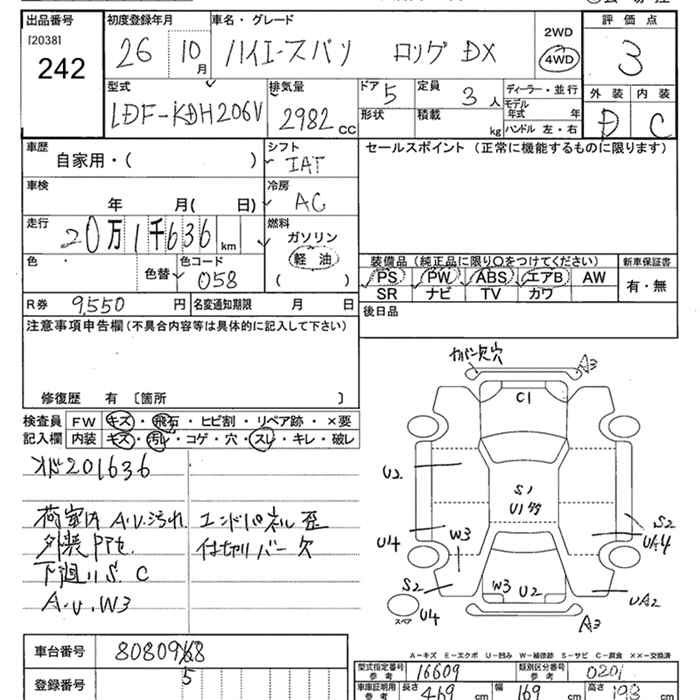 出品番号 初度登録年月 車名・グレード 2WD 評価点
[2038]
242 26 10月 ハイエースバン ロング DX 4WD 3
型式 排気量 ドア 定員 ディーラー・並行 外装 内装
LDF-KDH206V 2982CC 5 3人 モデル年式 年 D C
形状 積載 kg ハンドル 左・右
車歴 シフト セールスポイント (正常に機能するものに限ります)
自家用・( ) IAT
車検 冷房
年 月( 日) AC
走行 燃料
20万1千636km ガソリン
軽油
( )
色 色替 色コード
058
装備品 (純正品に限り○をつけてください) 新車保証書
PS PW ABS エアB AW 有・無
SR ナビ TV カワ
R券 9,550円 名変通知期限 月 日 後日品
注意事項申告欄 (不具合内容等は具体的に記入して下さい)
修復歴 有 〔箇所 〕
検査員 FW キズ・飛石・ヒビ割・リペア跡・×要
記入欄 内装 キズ・汚レ・コゲ・穴・スレ・キレ・破レ
メーター201636
荷室内 A.U.汚れ エンドパネル歪
外装PPt. 仕切りバー欠
下廻りS.C
A.U.W3
カバー欠穴 A3
C1
U2
S1
U1
U4 W3 S2
UA4
S2 W3 U2 UA2
スペア U4 A3
A-キズ E-エクボ U-凹み W-補修跡 S-サビ C-腐食 ××-交換済
車台番号 8080968
5
登録番号
型式指定番号 参考 16609 類別区分番号 参考 0201
車庫証明用 参考 長さ 469cm 幅 169cm 高さ 193cm